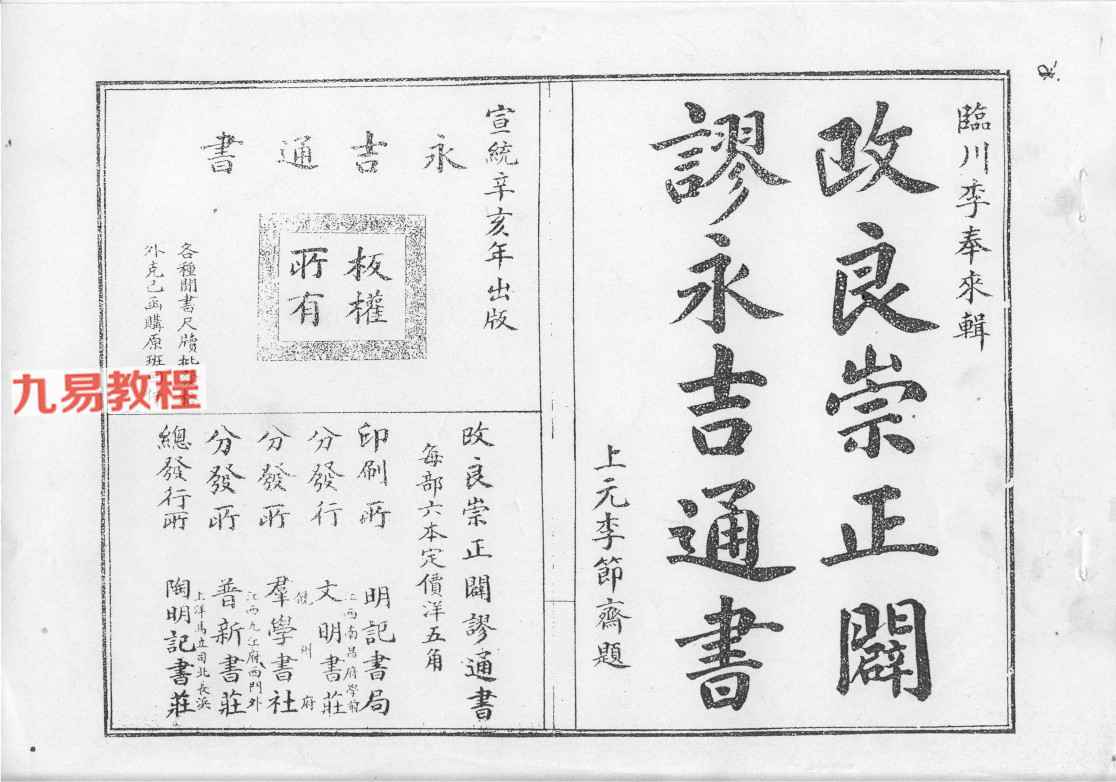 臨川李奉來輯
改良崇正闢
謬永吉通書
上元李節齋題
宣統辛亥年出版
永吉通書
板權
所有
各種閒書尺牘批
外克己函購原班
九易教程
改良崇正闢謬通書
每部六本定價洋五角
印刷所 明記書局
江西南昌府學前
分發行 文明書莊
饒州府
分發所 羣學書社
江西九江府西門外
分發所 普新書莊
上洋馬立司北長浜
總發行所 陶明記書莊